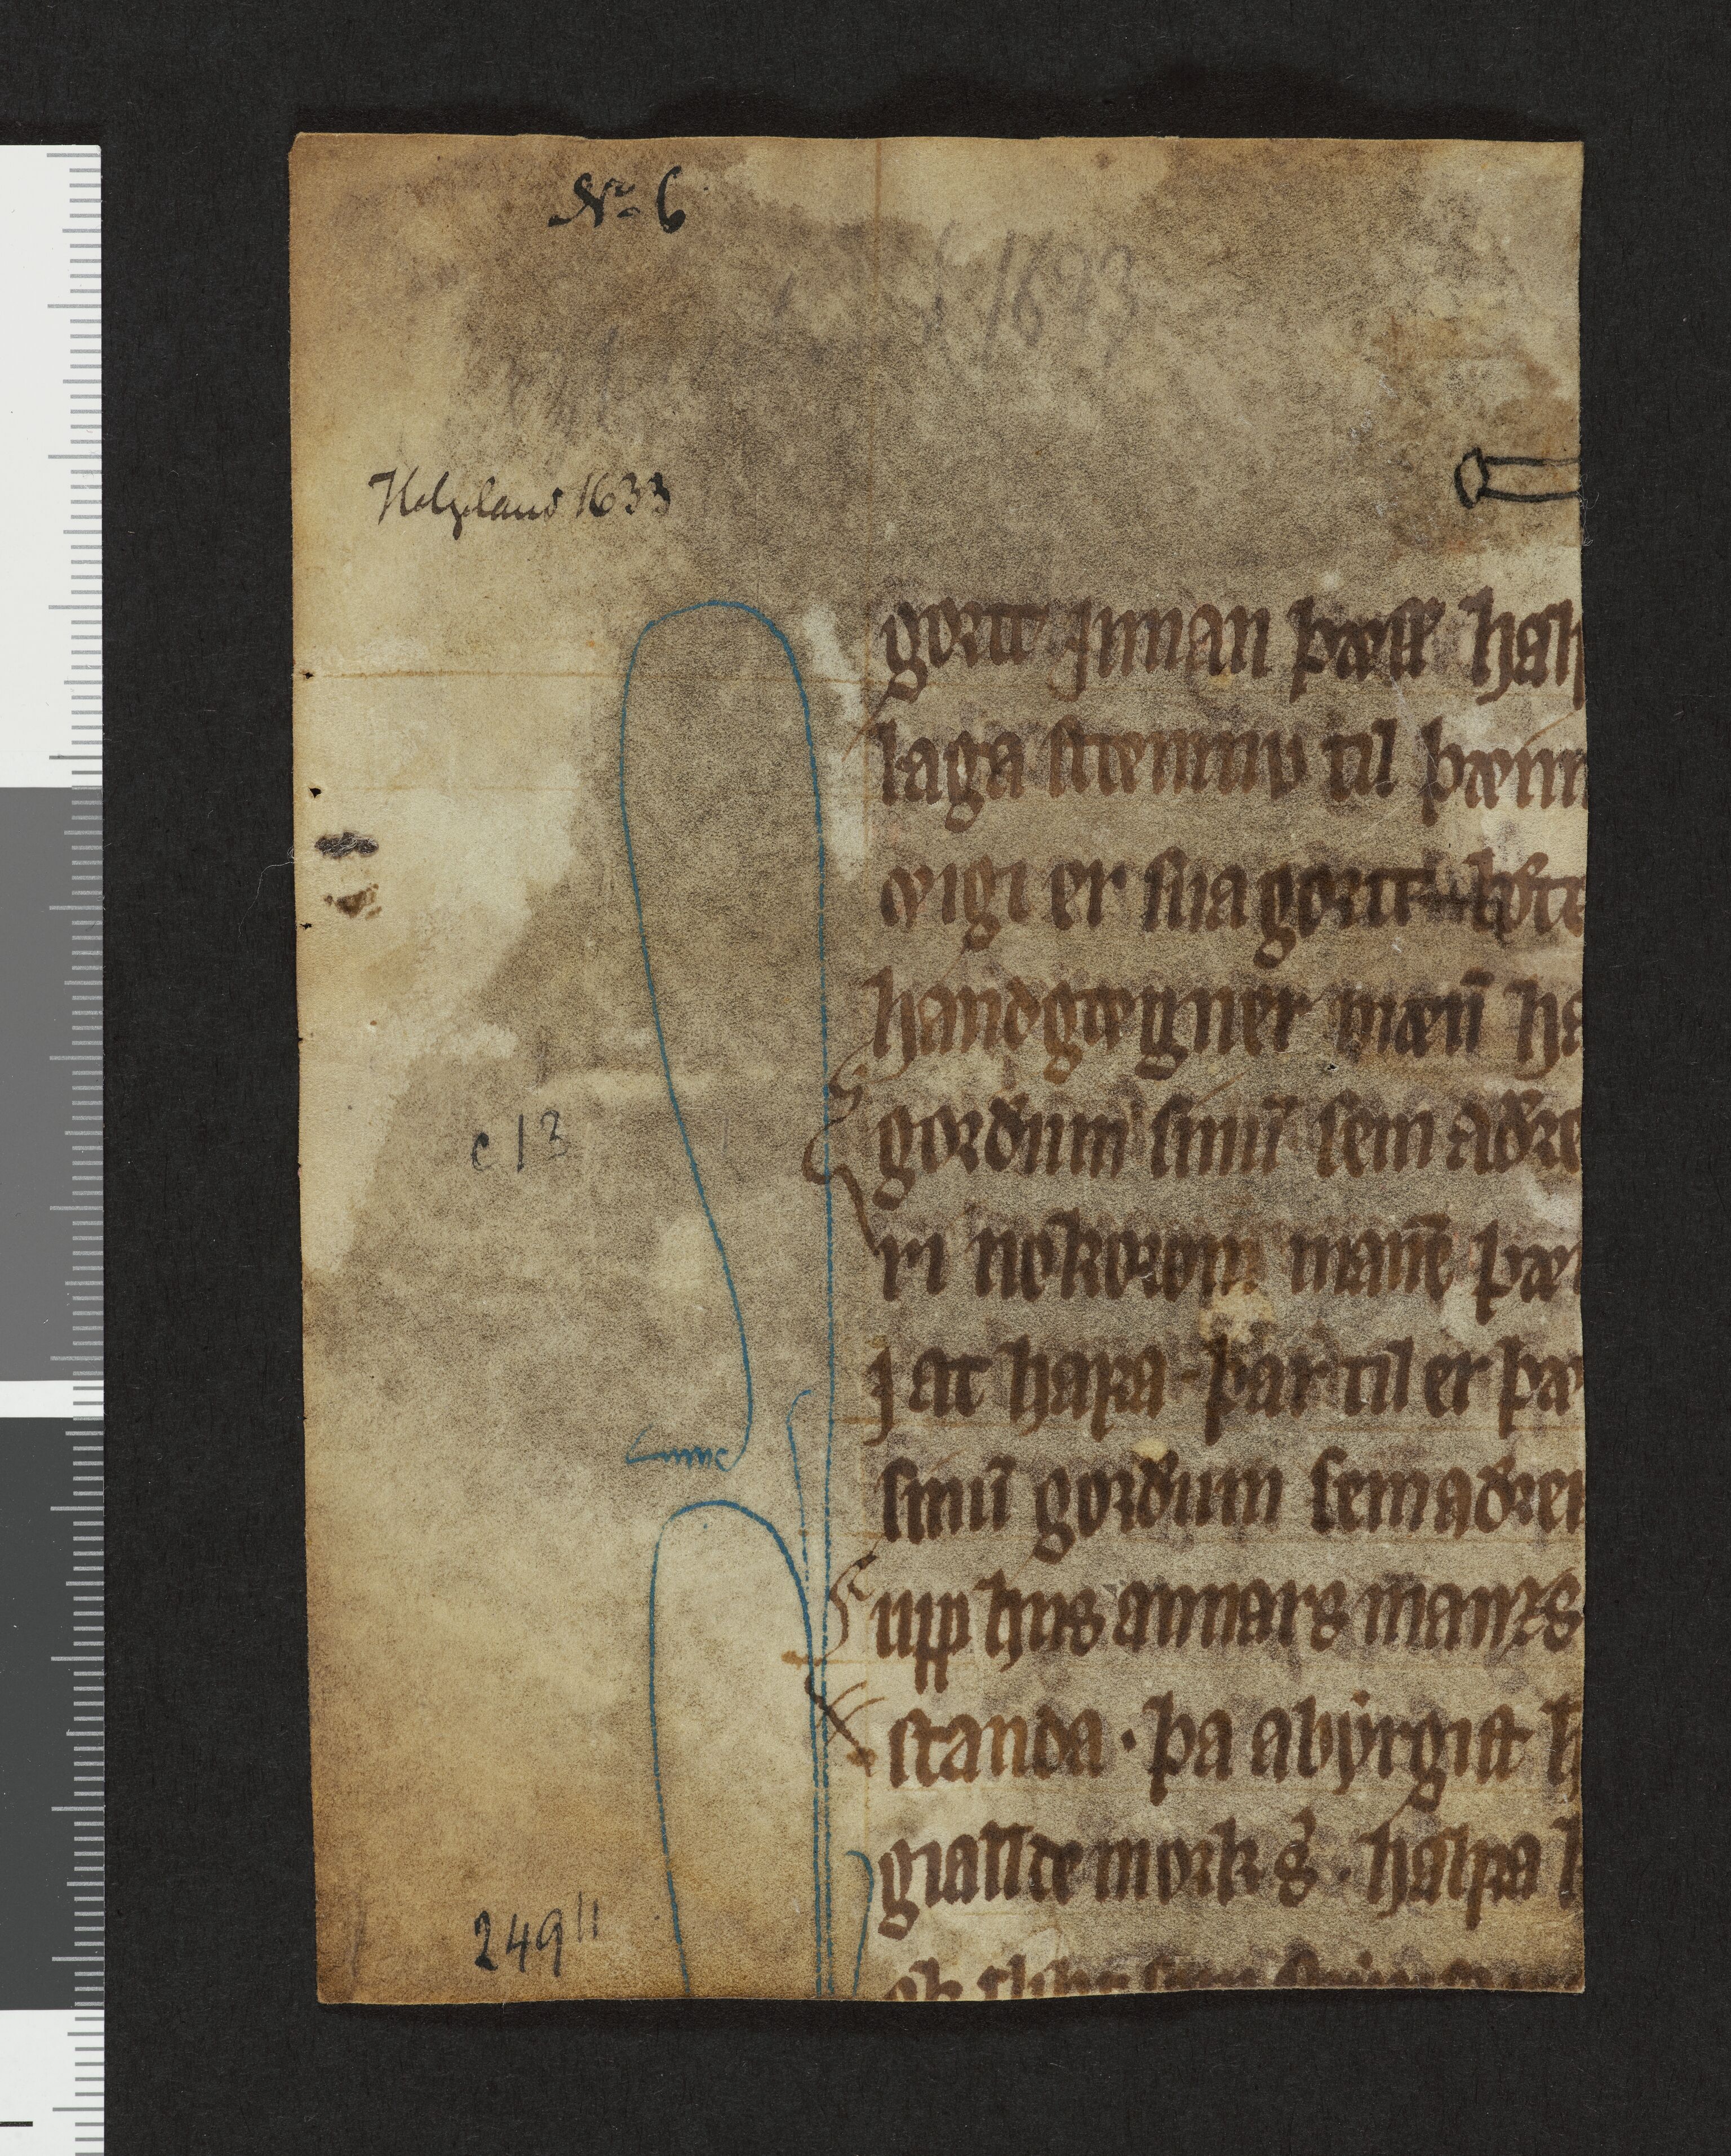 No 6
1693
Helgeland 1633
gortt Jnnan þæss hal
laga stæmnu til þæirr
æigi er sua gortt hỏfe
handgæigner mæn̄ ha
gorðum sinū sem aðre
ri nokorom man̄e þæi
j at hafa · þar til er þæ
sinū gorðum sem aðrer
upp hus annars manzs
standa · þa abyrgist h
giallde mork s̉ · halfa k
c 13
249 11